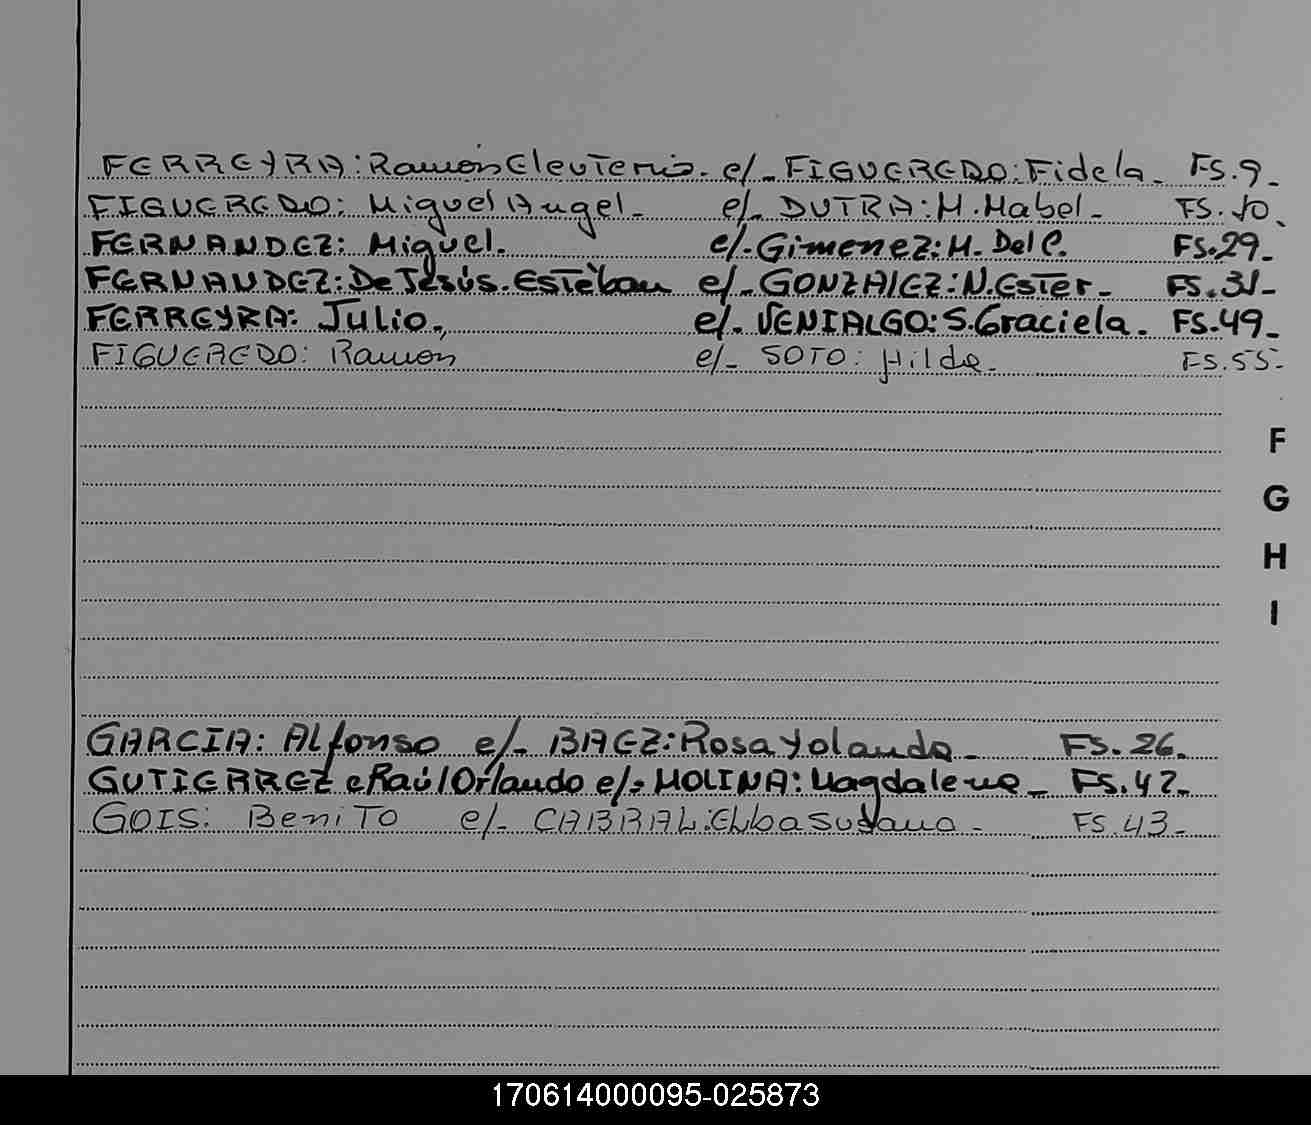 FERREYRA: Ramón Eleuterio. e/- FIGUEREDO: Fidela - FS. 9 -
FIGUEREDO: Miguel Angel. - e/- DUTRA: M. Mabel - FS. 10.
FERNANDEZ: Miguel. e/- Gimenez: M. Del C. FS. 29 -
FERNANDEZ: De Jesús. Estéban e/- GONZALEZ: N. Ester - FS. 31 -
FERREYRA: Julio. e/- VENIALGO: S. Graciela. FS. 49 -
FIGUEREDO: Ramón e/- SOTO: Hilda. FS. 55 -
F
G
H
I
GARCIA: Alfonso e/- BAEZ: Rosa Yolanda - FS. 26.
GUTIERREZ: Raúl Orlando e/- MOLINA: Magdalena - FS. 42 -
GOIS: Benito e/- CABRAL: Elba Susana - FS. 43 -
170614000095-025873